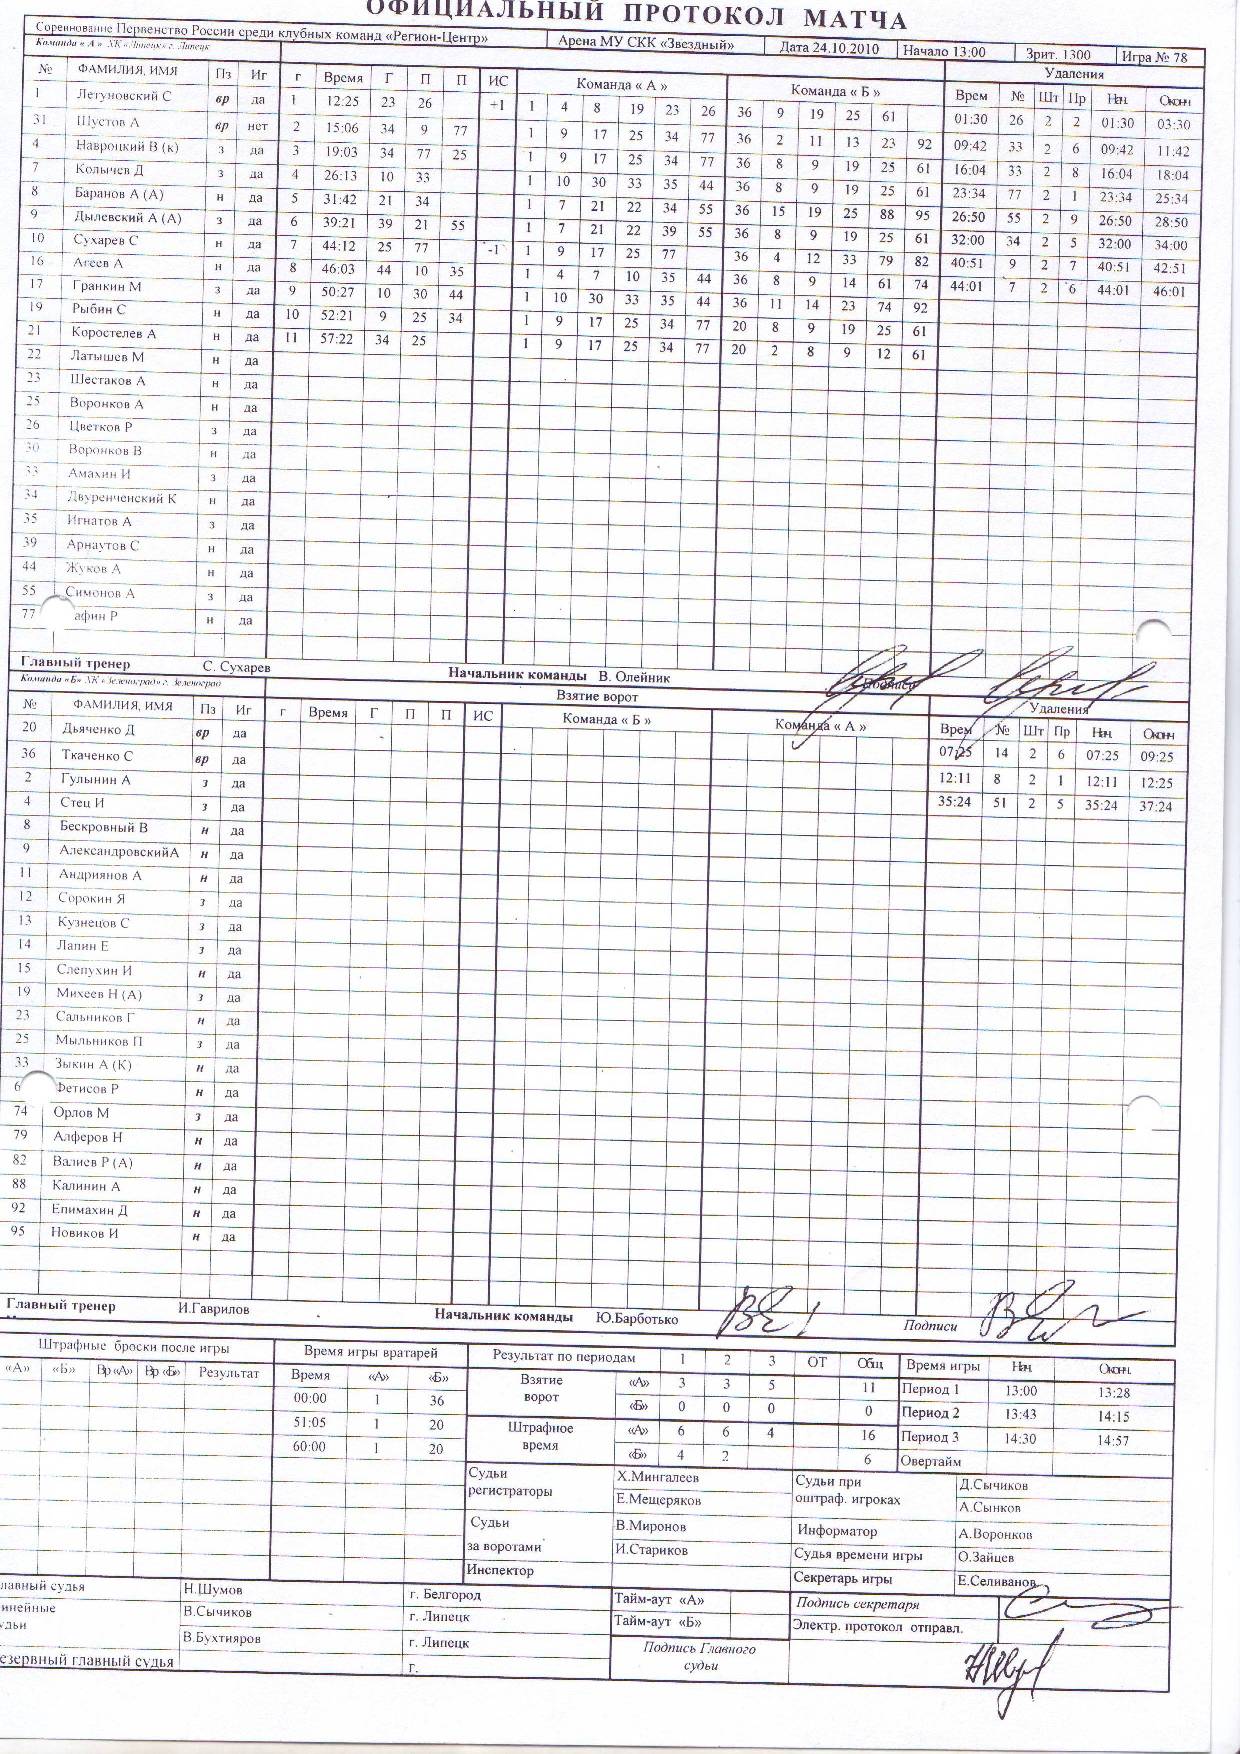 ОФИЦИАЛЬНЫЙ ПРОТОКОЛ МАТЧА
Соревнование Первенство России среди клубных команд «Регион-Центр» Арена МУ СКК «Звездный» Дата 24.10.2010 Начало 13:00 Зрит. 1300 Игра № 78
Команда « А » ХК «Липецк» г. Липецк Удаления
№ ФАМИЛИЯ, ИМЯ Пз Иг г Время Г П П ИС Команда « А » Команда « Б » Врем № Шт Пр Нач. Оконч
1 Летуновский С вр да 1 12:25 23 26 +1 1 4 8 19 23 26 36 9 19 25 61 01:30 26 2 2 01:30 03:30
31 Шустов А вр нет 2 15:06 34 9 77 1 9 17 25 34 77 36 2 11 13 23 92 09:42 33 2 6 09:42 11:42
4 Навроцкий В (к) з да 3 19:03 34 77 25 1 9 17 25 34 77 36 8 9 19 25 61 16:04 33 2 8 16:04 18:04
7 Колычев Д з да 4 26:13 10 33 1 10 30 33 35 44 36 8 9 19 25 61 23:34 77 2 1 23:34 25:34
8 Баранов А (А) н да 5 31:42 21 34 1 7 21 22 34 55 36 15 19 25 88 95 26:50 55 2 9 26:50 28:50
9 Дылевский А (А) з да 6 39:21 39 21 55 1 7 21 22 39 55 36 8 9 19 25 61 32:00 34 2 5 32:00 34:00
10 Сухарев С н да 7 44:12 25 77 -1 1 9 17 25 77 36 4 12 33 79 82 40:51 9 2 7 40:51 42:51
16 Агеев А н да 8 46:03 44 10 35 1 4 7 10 35 44 36 8 9 14 61 74 44:01 7 2 6 44:01 46:01
17 Гранкин М з да 9 50:27 10 30 44 1 10 30 33 35 44 36 11 14 23 74 92
19 Рыбин С н да 10 52:21 9 25 34 1 9 17 25 34 77 20 8 9 19 25 61
21 Коростелев А н да 11 57:22 34 25 1 9 17 25 34 77 20 2 8 9 12 61
22 Латышев М н да
23 Шестаков А н да
25 Воронков А н да
26 Цветков Р з да
30 Воронков В н да
33 Амахин И з да
34 Двуреченский К н да
35 Игнатов А з да
39 Арнаутов С н да
44 Жуков А н да
55 Симонов А з да
77 афин Р н да
Главный тренер С. Сухарев Начальник команды В. Олейник Подписи
Команда «Б» ХК «Зеленоград» г. Зеленоград Взятие ворот Удаления
№ ФАМИЛИЯ, ИМЯ Пз Иг г Время Г П П ИС Команда « Б » Команда « А » Врем № Шт Пр Нач. Оконч
20 Дьяченко Д вр да 07:25 14 2 6 07:25 09:25
36 Ткаченко С вр да 12:11 8 2 1 12:11 12:25
2 Гулынин А з да 35:24 51 2 5 35:24 37:24
4 Стец И з да
8 Бескровный В н да
9 АлександровскийА н да
11 Андриянов А н да
12 Сорокин Я з да
13 Кузнецов С з да
14 Лапин Е з да
15 Слепухин И н да
19 Михеев Н (А) з да
23 Сальников Г н да
25 Мыльников П з да
33 Зыкин А (К) н да
6 Фетисов Р н да
74 Орлов М з да
79 Алферов Н н да
82 Валиев Р (А) н да
88 Калинин А н да
92 Епимахин Д н да
95 Новиков И н да
Главный тренер И.Гаврилов Начальник команды Ю.Барботько Подписи
Штрафные броски после игры Время игры вратарей Результат по периодам 1 2 3 ОТ Общ Время игры Нач. Оконч.
«А» «Б» Вр «А» Вр «Б» Результат Время «А» «Б» Взятие ворот «А» 3 3 5 11 Период 1 13:00 13:28
00:00 1 36 «Б» 0 0 0 0 Период 2 13:43 14:15
51:05 1 20 Штрафное время «А» 6 6 4 16 Период 3 14:30 14:57
60:00 1 20 «Б» 4 2 6 Овертайм
Судьи регистраторы Х.Мингалеев Судьи при оштраф. игроках Д.Сычиков
Е.Мещеряков А.Сынков
Судьи за воротами В.Миронов Информатор А.Воронков
И.Стариков Судья времени игры О.Зайцев
Инспектор Секретарь игры Е.Селиванов
лавный судья Н.Шумов г. Белгород Тайм-аут «А» Подпись секретаря
инейные удьи В.Сычиков г. Липецк Тайм-аут «Б» Электр. протокол отправл.
В.Бухтияров г. Липецк Подпись Главного судьи
езервный главный судья г.